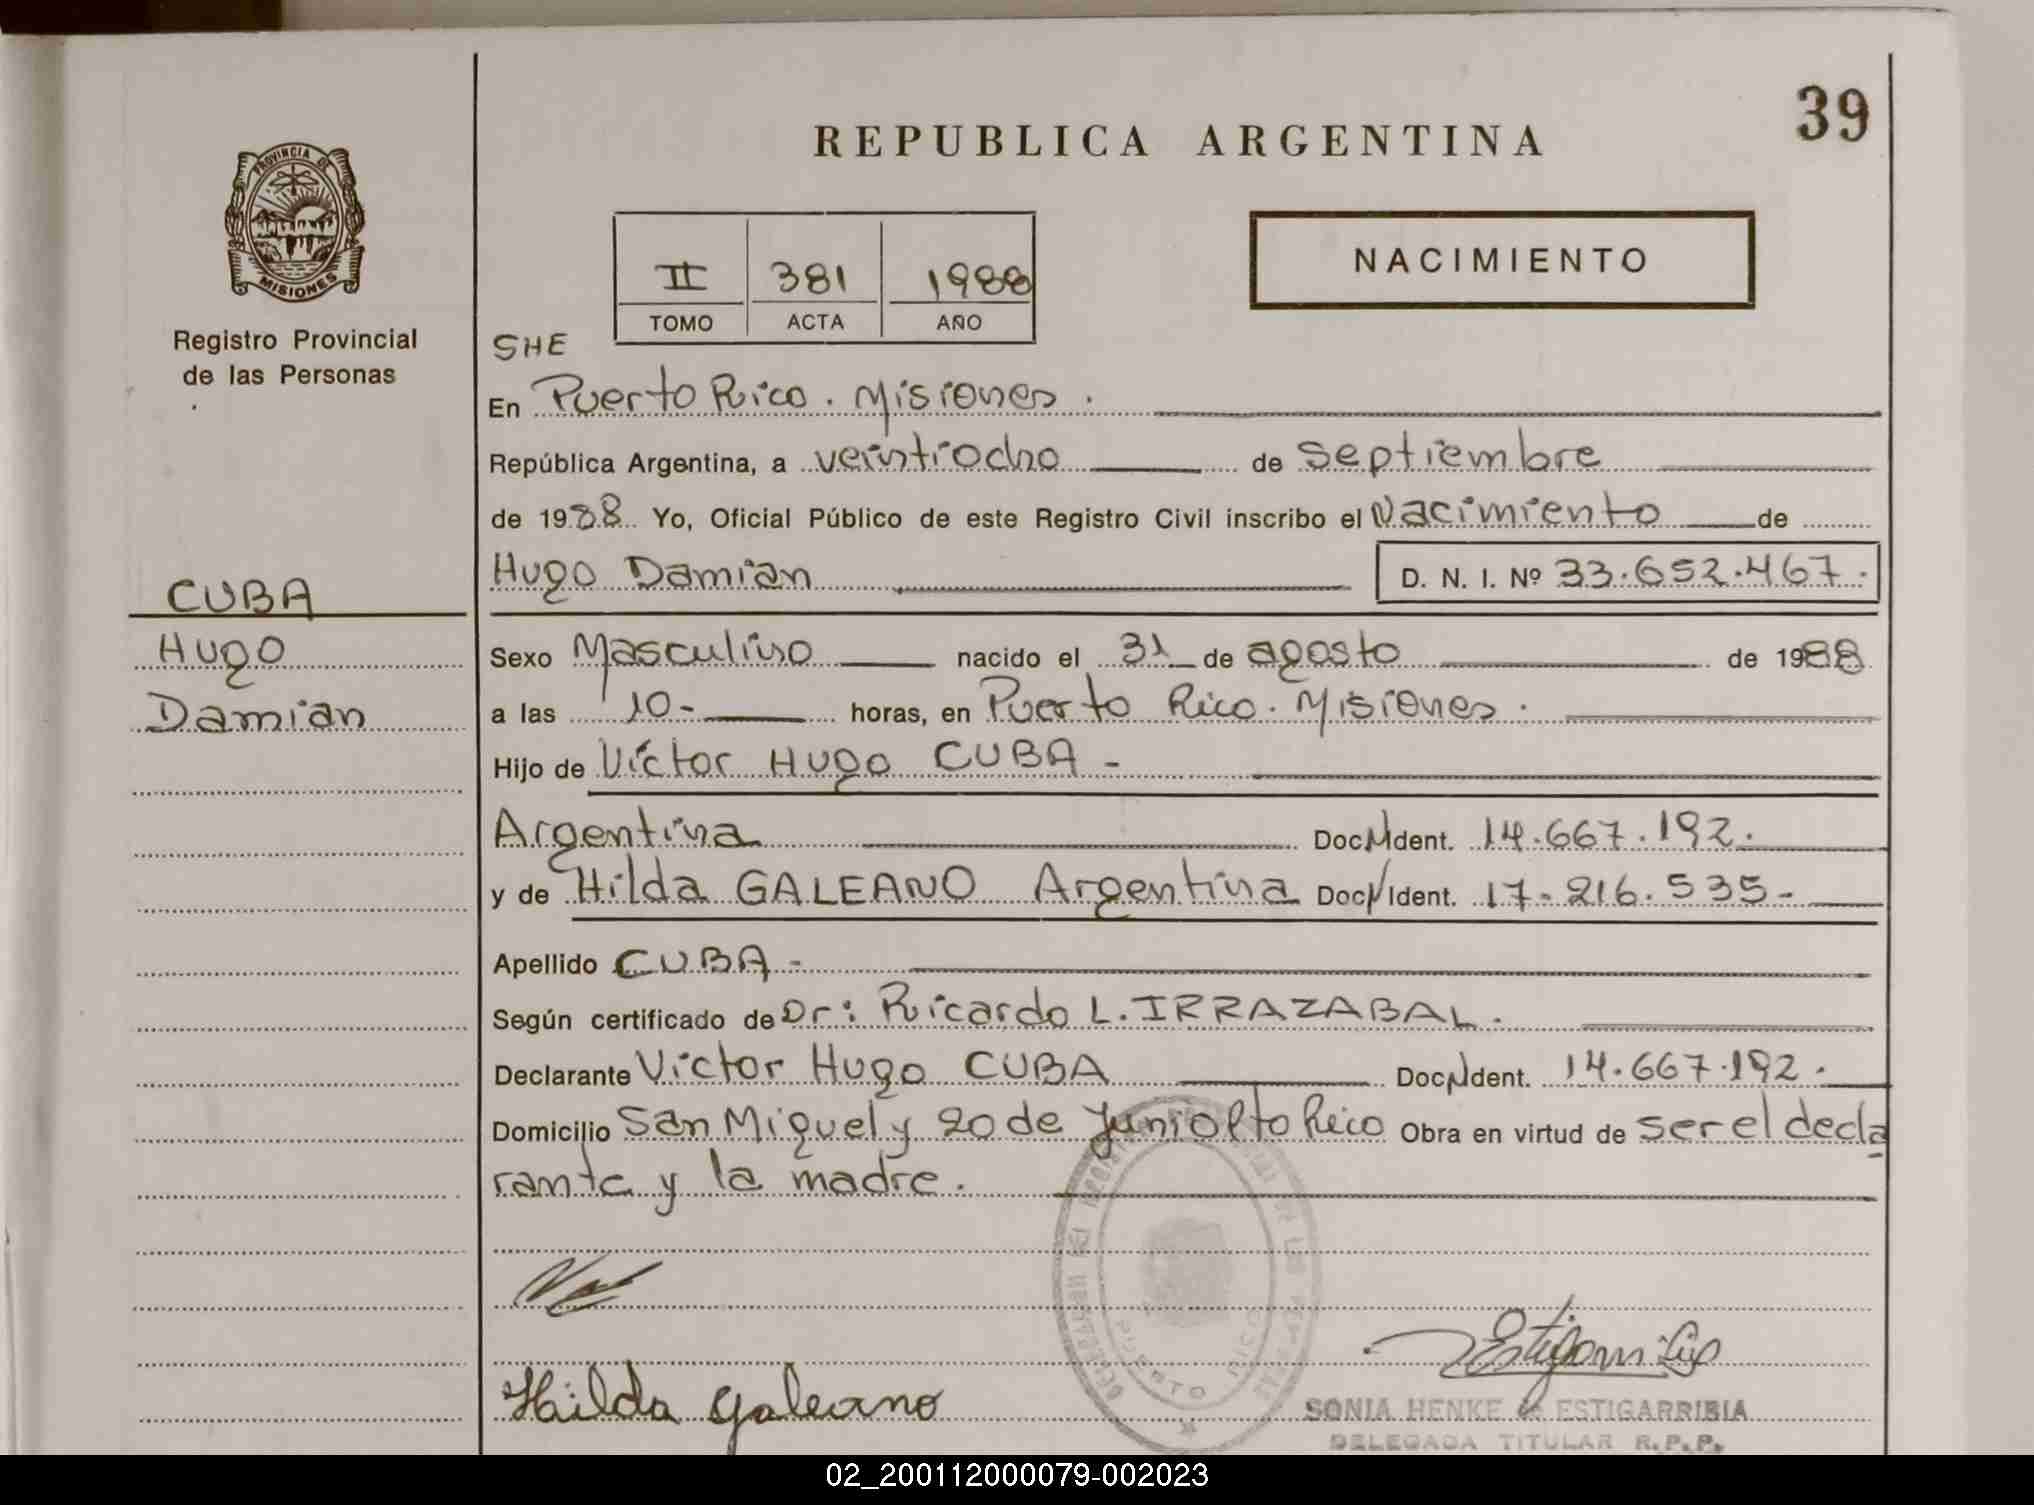 39
REPUBLICA ARGENTINA
PROVINCIA DE
MISIONES
Registro Provincial
de las Personas
II 381 1988
TOMO ACTA AÑO
NACIMIENTO
SHE
En Puerto Rico. Misiones.
República Argentina, a veintiocho de septiembre
de 1988 Yo, Oficial Público de este Registro Civil inscribo el Nacimiento de
Hugo Damian D. N. I. Nº 33.652.467.
CUBA
Hugo
Damian
Sexo Masculino nacido el 31 de agosto de 1988
a las 10- horas, en Puerto Rico. Misiones.
Hijo de Víctor Hugo CUBA -
Argentina Doc. Ident. 14.667.192.
y de Hilda GALEANO Argentina Doc. Ident. 17.216.535-
Apellido CUBA -
Según certificado de Dr: Ricardo L. IRRAZABAL.
Declarante Victor Hugo CUBA Doc. Ident. 14.667.192.
Domicilio San Miguel y 20 de Junio Pto Rico Obra en virtud de ser el decla
rante y la madre.
PUERTO RICO
Hilda Galeano
SONIA HENKE de ESTIGARRIBIA
DELEGADA TITULAR R.P.P.
02_200112000079-002023